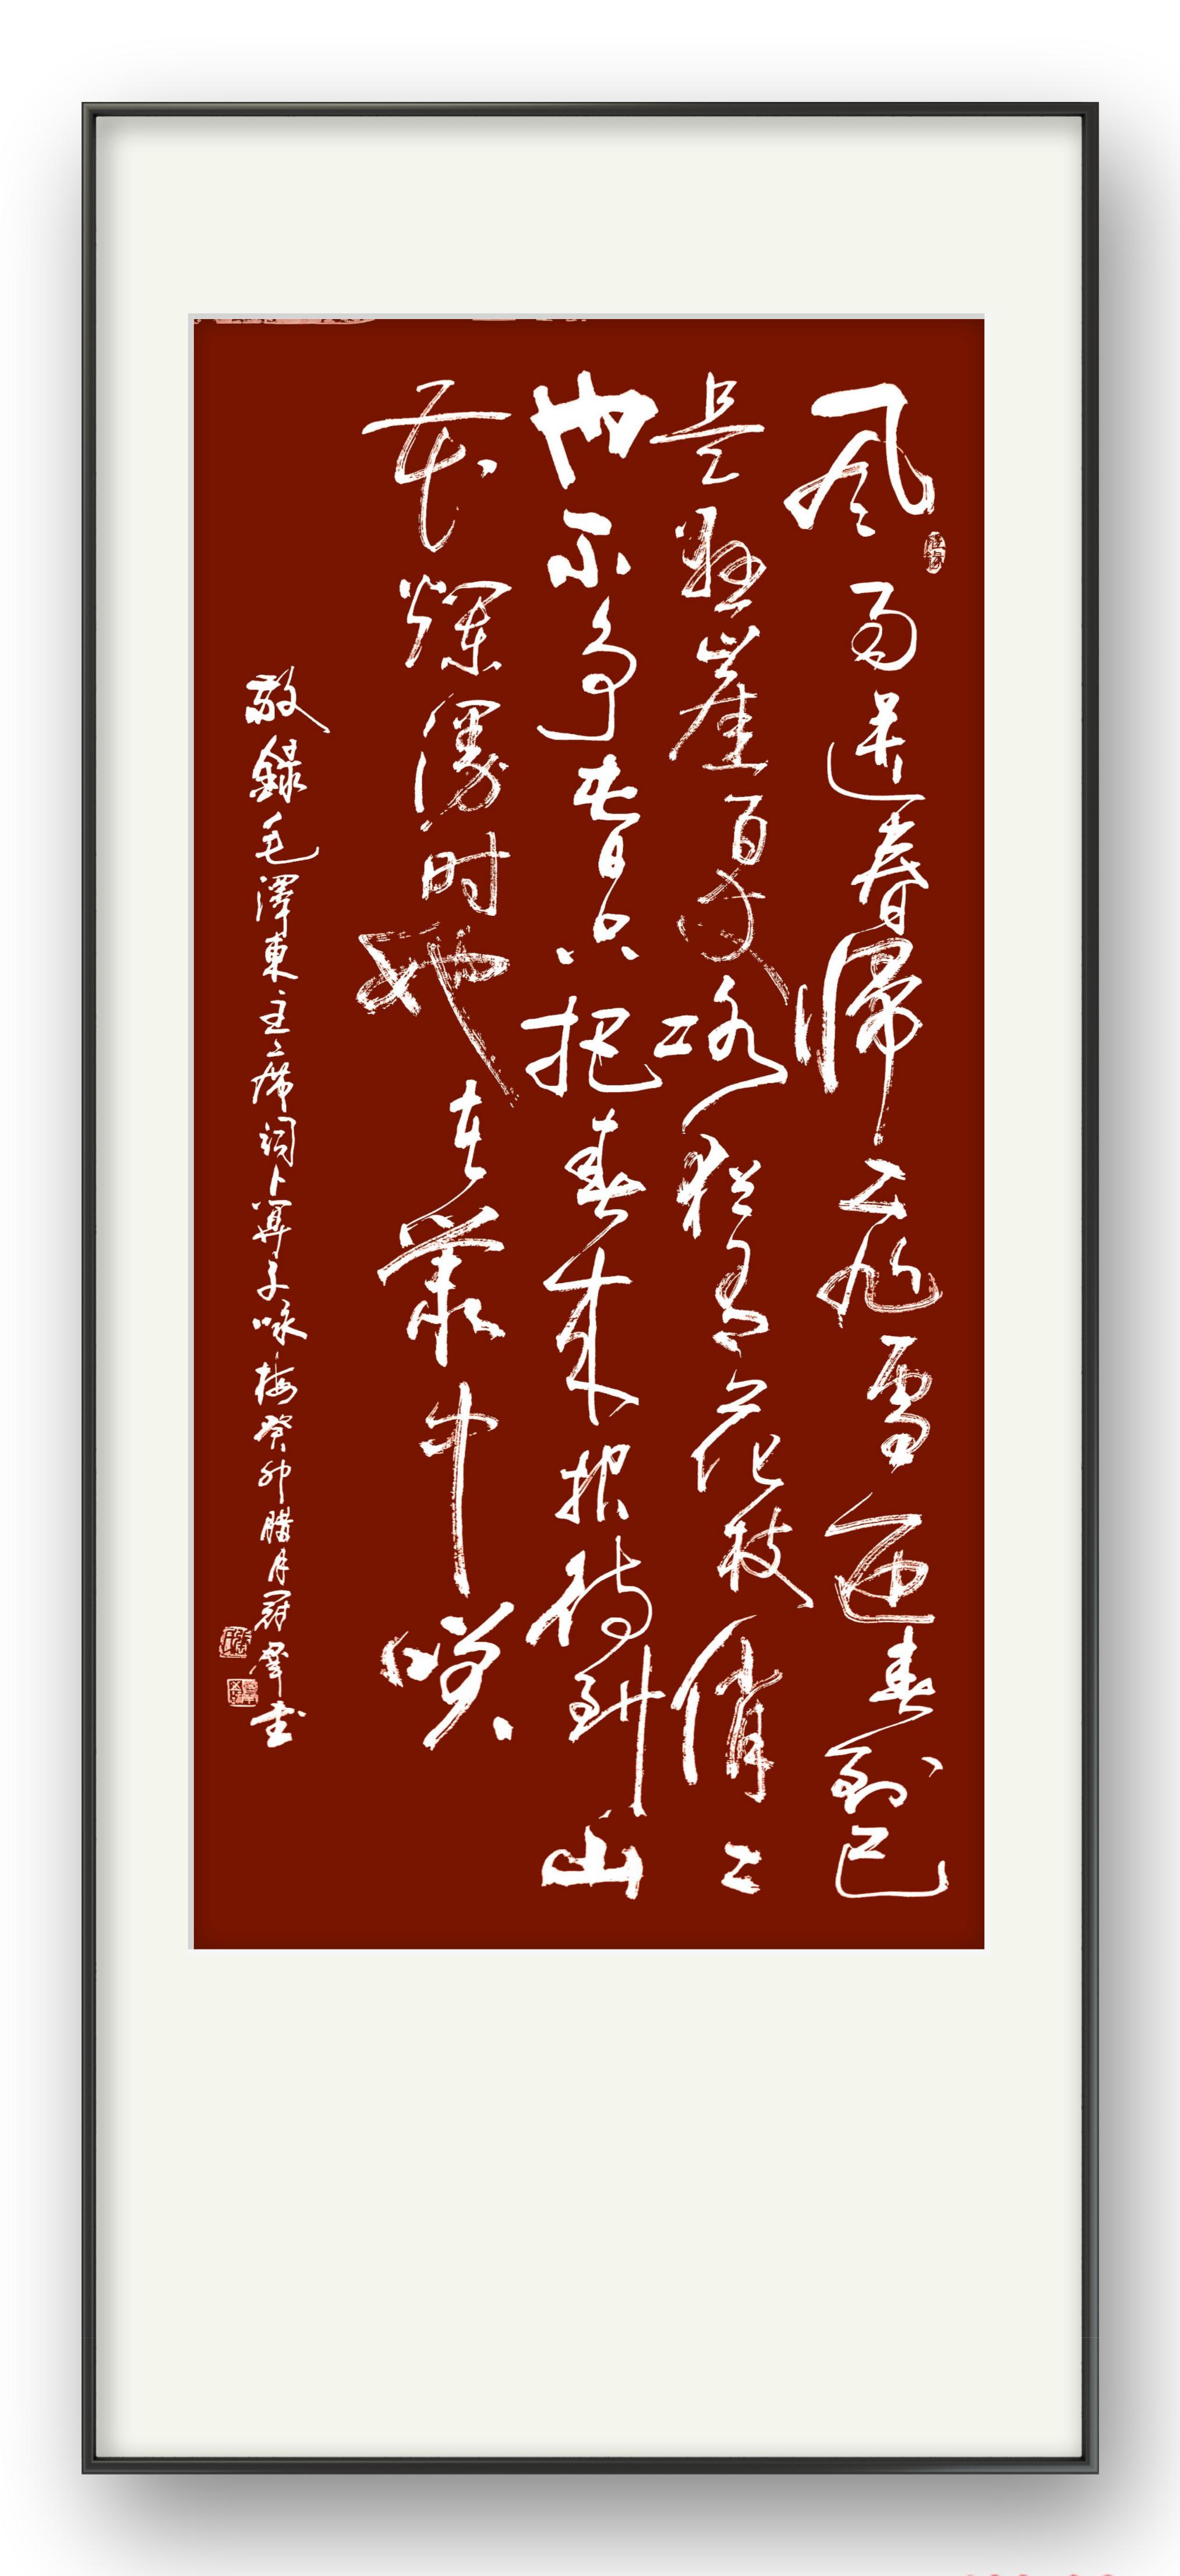 風雨送春歸飛雪迎春到已
是懸崖百丈冰猶有花枝俏〻
也不爭春只把春來报待到山
花爛漫时她在叢中咲
敬録毛澤東主席詞卜算子咏梅癸卯腊月冠羣书